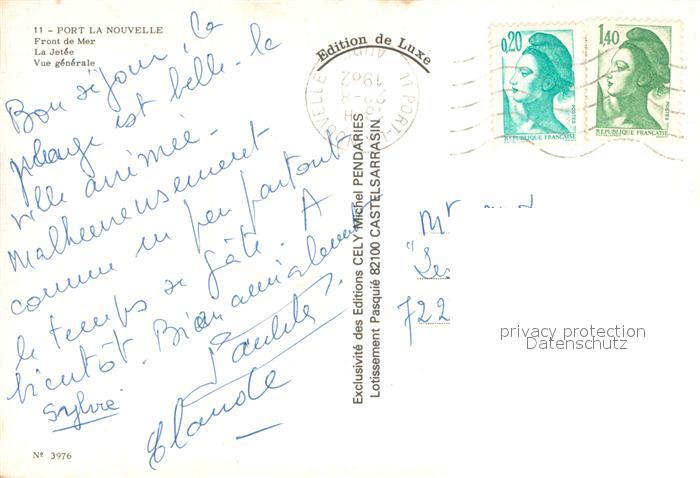 11 - PORT LA NOUVELLE
Front de Mer
La Jetée
Vue générale
Bon séjour, la
plage est belle - la
ville animée -
Malheureusement
comme un peu partout
le temps se gâte. A
bientôt. Bien amicalement
Sylvie
Claude
Nº 3976
Edition de Luxe
Exclusivité des Editions CELY Michel PENDARIES
Lotissement Pasquié 82100 CASTELSARRASIN
11 PORT-LA
NOUVELLE
1982
0,20
POSTES
REPUBLIQUE FRANÇAISE
1,40
POSTES
REPUBLIQUE FRANÇAISE
Mr
"Les
722
privacy protection
Datenschutz